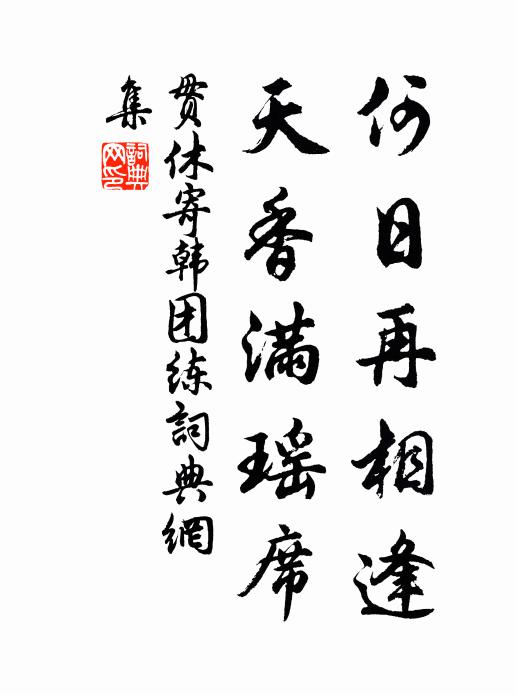 何日再相逢
天香滿瑶席
贯休寄韩团练詞典網
集
詞典
网印